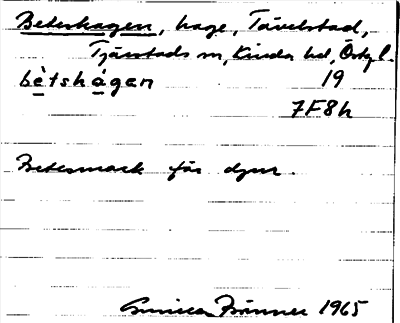 Beteshagen, hage, Tävelstad,
Tjärstads sn, Kinda hd, Östg l.
bètshàgan 19
7F8h
Betesmark för djur.
Gunilla Brönner 1965